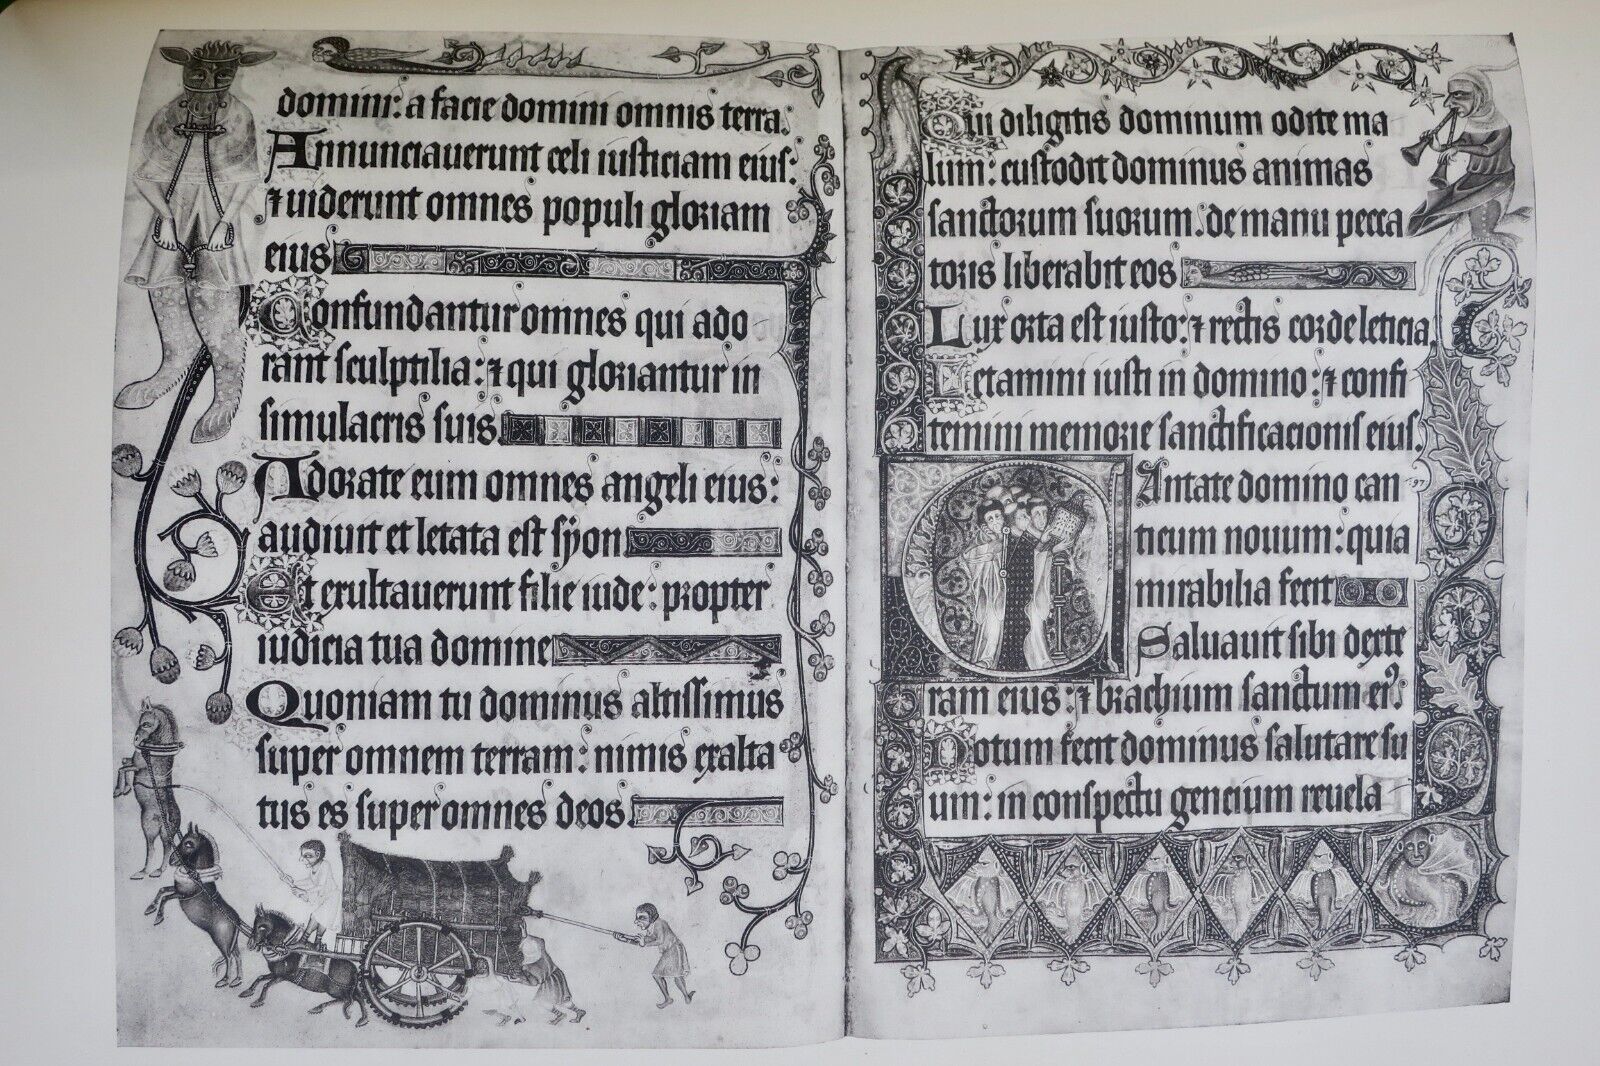 domini: a facie domini omnis terra.
Annunciauerunt celi iusticiam eius:
⁊ uiderunt omnes populi gloriam
eius
Confundantur omnes qui ado
rant sculptilia: ⁊ qui gloriantur in
simulacris suis.
Adorate eum omnes angeli eius:
audiuit et letata est syon
Et exultauerunt filie iude: propter
iudicia tua domine
Quoniam tu dominus altissimus
super omnem terram: nimis exalta
tus es super omnes deos.
Qui diligitis dominum odite ma
lum: custodit dominus animas
sanctorum suorum. de manu pecca
toris liberabit eos
Lux orta est iusto: ⁊ rectis corde leticia.
Letamini iusti in domino: ⁊ confi
temini memorie sanctificacionis eius.
Cantate domino can
ticum nouum: quia
mirabilia fecit
Saluauit sibi dexte
ram eius: ⁊ brachium sanctum eiꝰ.
Notum fecit dominus salutare su
um: in conspectu gencium reuela
97